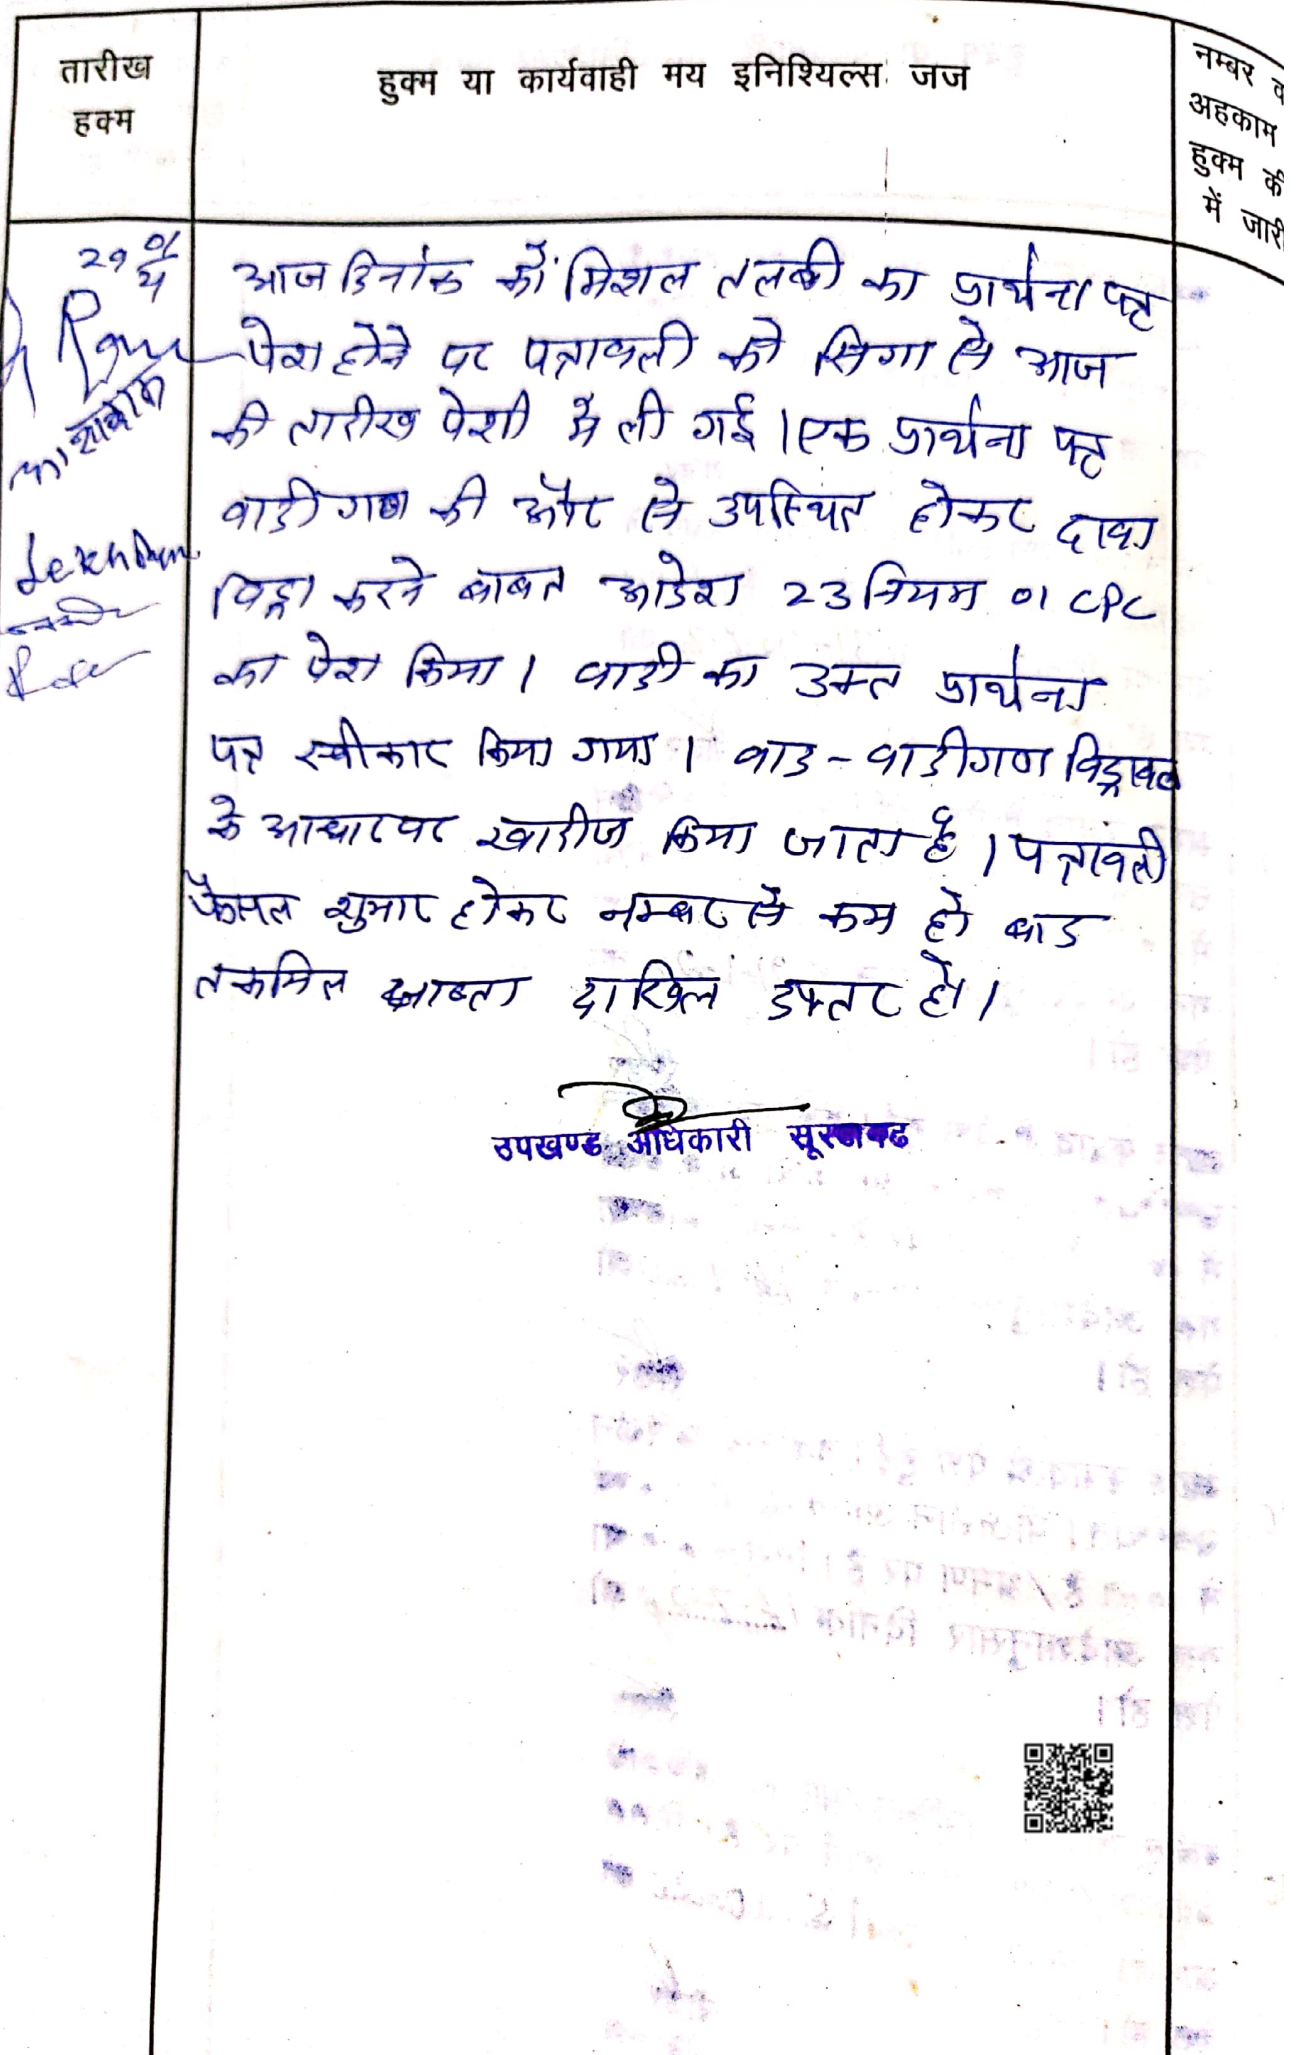 तारीख
हक्म
हुक्म या कार्यवाही मय इनिशियल्स जज
नम्बर व
अहकाम
हुक्म की
में जारी
29
आज दिनांक को मिशल तलबी का प्रार्थना पत्र
पेश होने पर पत्रावली को सिगा से आज
की तारीख पेशी मे ली गई । एक प्रार्थना पत्र
वादीगण की और से उपस्थित होकर दावा
विड्रा करने बाबत आदेश 23 नियम 01 CPC
का पेश किया । वादी का उक्त प्रार्थना
पत्र स्वीकार किया गया । वाद - वादीगण विड्रावल
के आधार पर खारीज किया जाता है । पत्रावली
फैसल शुमार होकर नम्बर से कम हो बाद
तकमिल जाब्ता दाखिल दफ्तर हो ।
उपखण्ड अधिकारी सूरजगढ